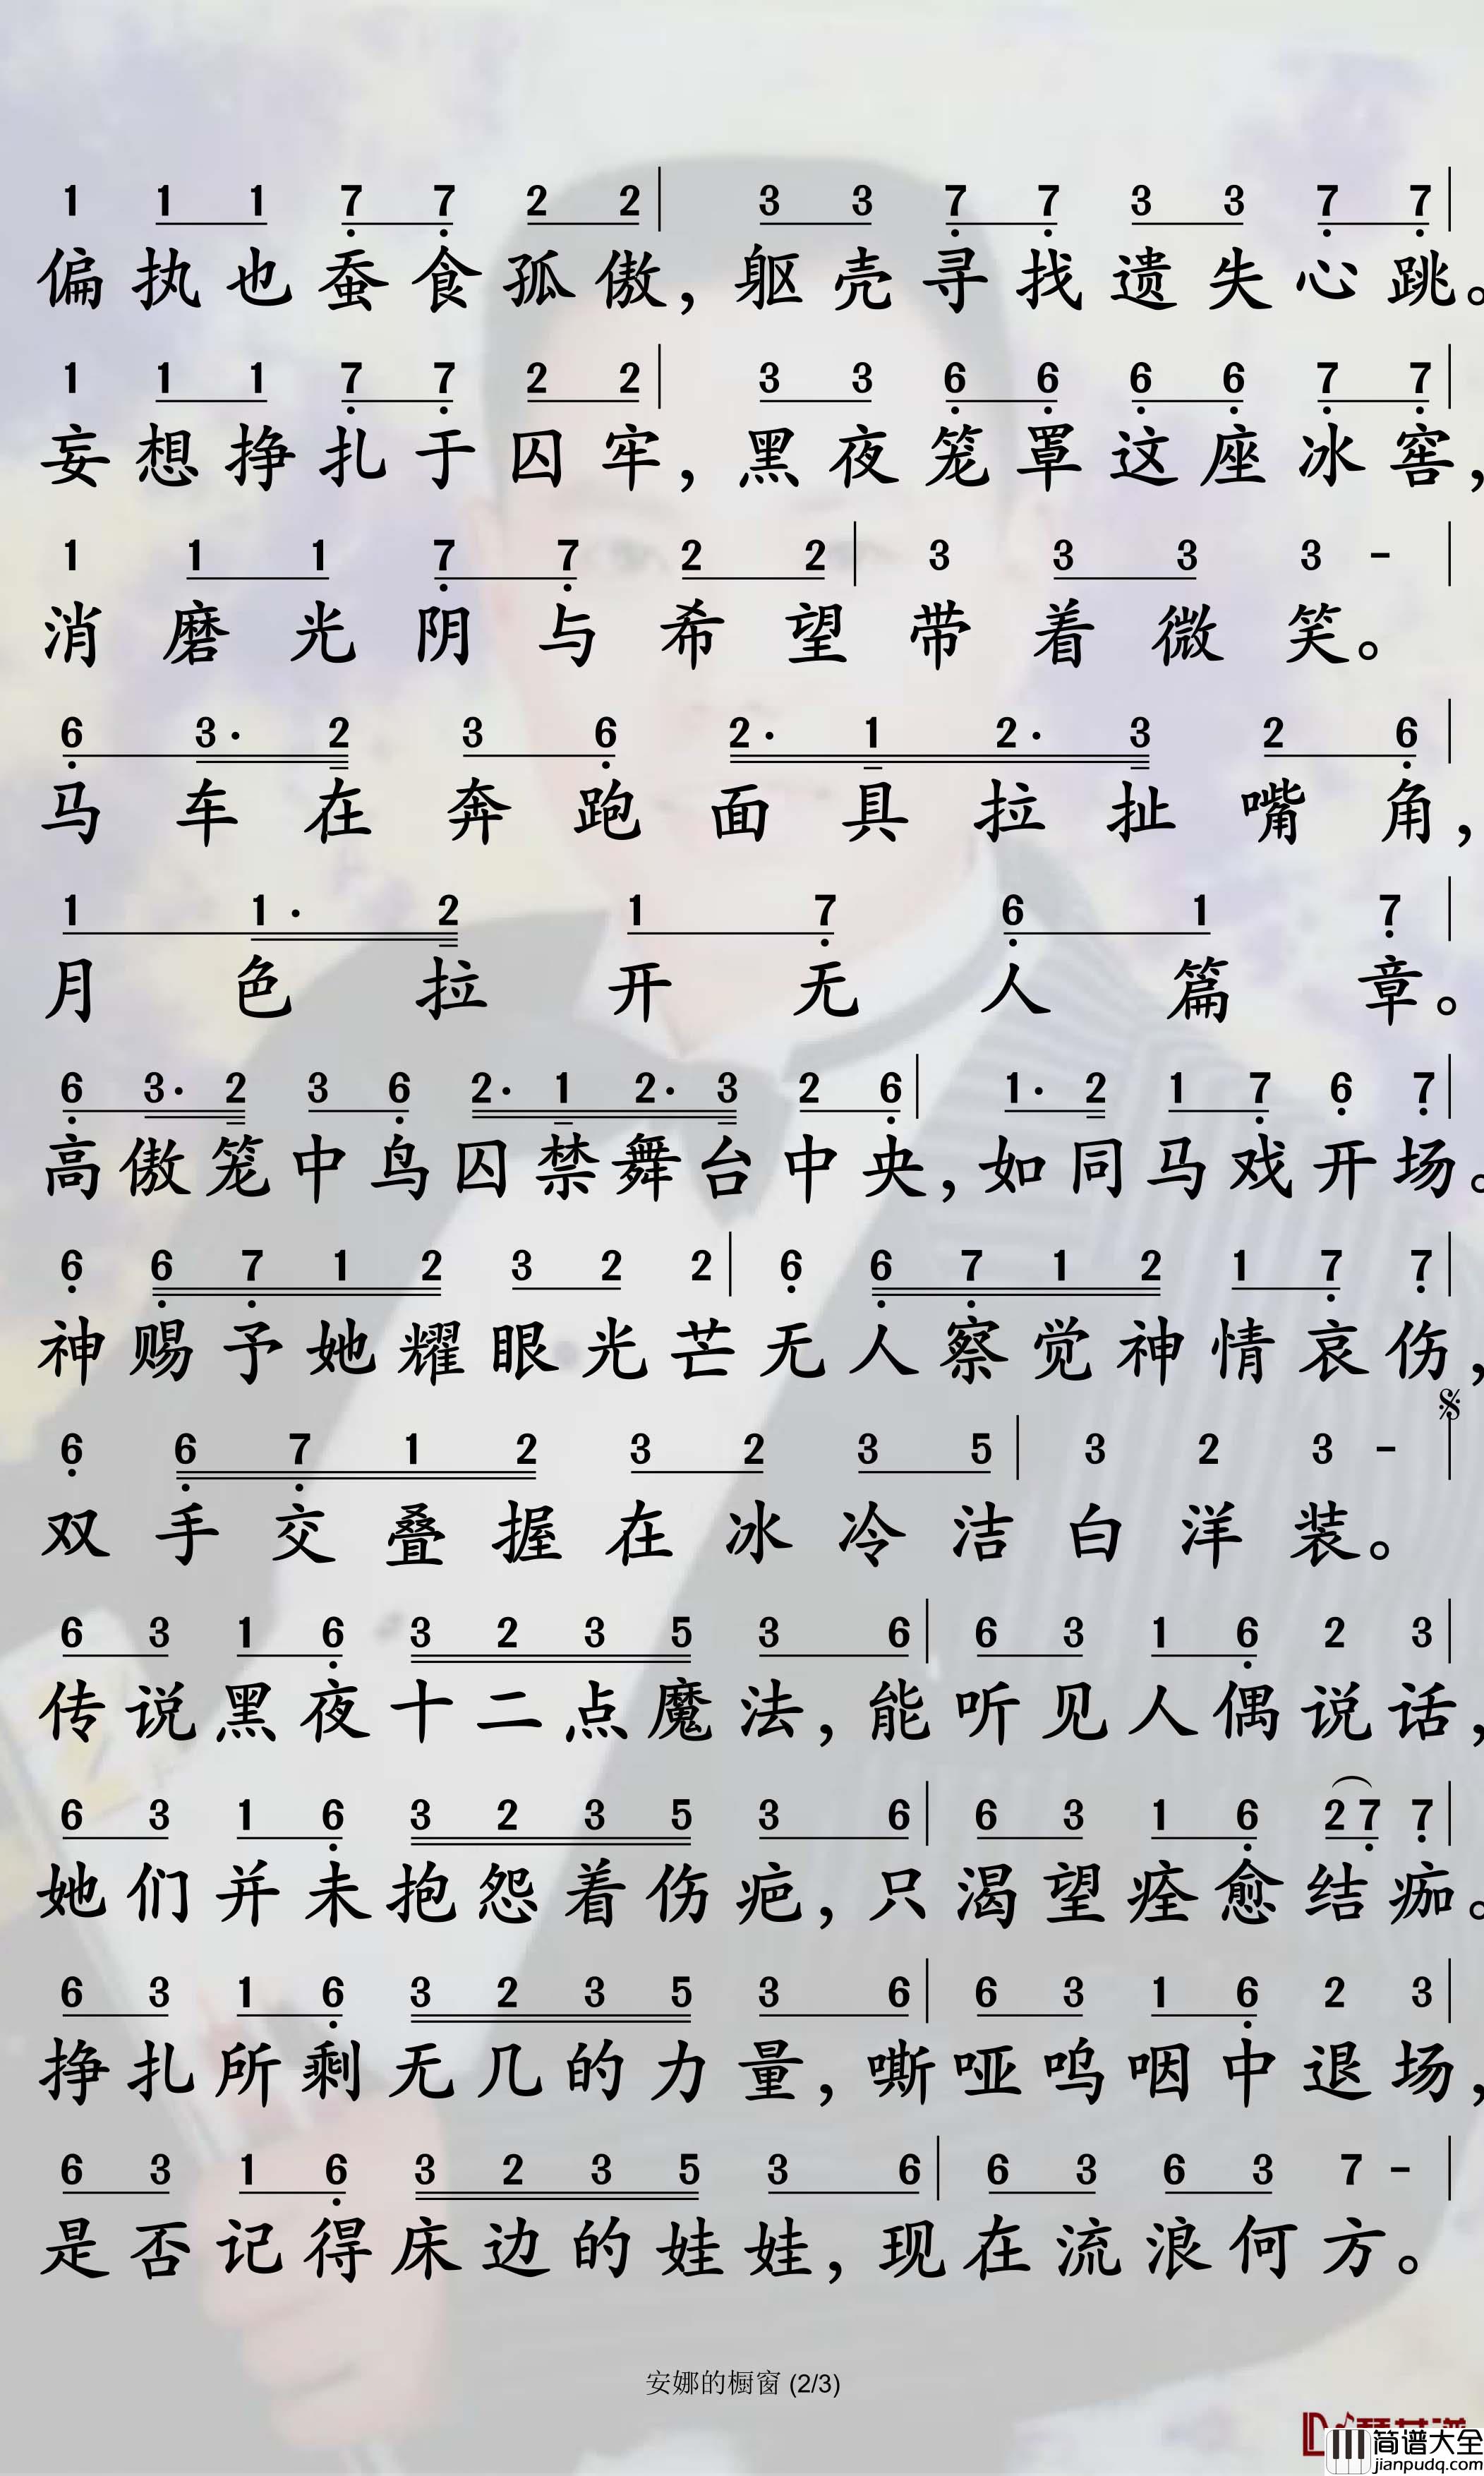 1 1 1 7 7 2 2 | 3 3 7 7 3 3 7 7 |
偏执也蚕食孤傲，躯壳寻找遗失心跳。
1 1 1 7 7 2 2 | 3 3 6 6 6 6 7 7 |
妄想挣扎于囚牢，黑夜笼罩这座冰窖，
1 1 1 7 7 2 2 | 3 3 3 3 - |
消磨光阴与希望带着微笑。
6 3· 2 3 6 2· 1 2· 3 2 6 |
马车在奔跑面具拉扯嘴角，
1 1· 2 1 7 6 1 7 |
月色拉开无人篇章。
6 3· 2 3 6 2· 1 2· 3 2 6 | 1· 2 1 7 6 7 |
高傲笼中鸟囚禁舞台中央，如同马戏开场。
6 6 7 1 2 3 2 2 | 6 6 7 1 2 1 7 7 |
神赐予她耀眼光芒无人察觉神情哀伤，
6 6 7 1 2 3 2 3 5 | 3 2 3 - |
双手交叠握在冰冷洁白洋装。
6 3 1 6 3 2 3 5 3 6 | 6 3 1 6 2 3 |
传说黑夜十二点魔法，能听见人偶说话，
6 3 1 6 3 2 3 5 3 6 | 6 3 1 6 2 7 7 |
她们并未抱怨着伤疤，只渴望痊愈结痂。
6 3 1 6 3 2 3 5 3 6 | 6 3 1 6 2 3 |
挣扎所剩无几的力量，嘶哑呜咽中退场，
6 3 1 6 3 2 3 5 3 6 | 6 3 6 3 7 - |
是否记得床边的娃娃，现在流浪何方。
安娜的橱窗 (2/3)
简谱大全
jianpudq.com